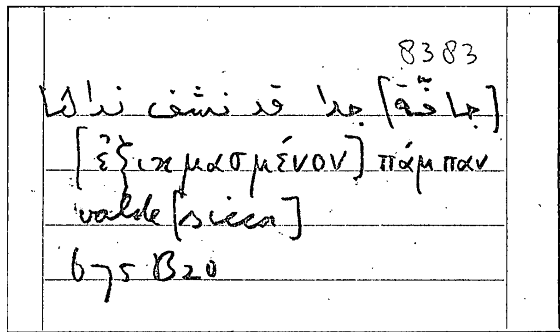 8383
[جافّة] جدا قد نشف نداها
[ἐξικμασμένον] πάμπαν
valde [sicca]
675 B20